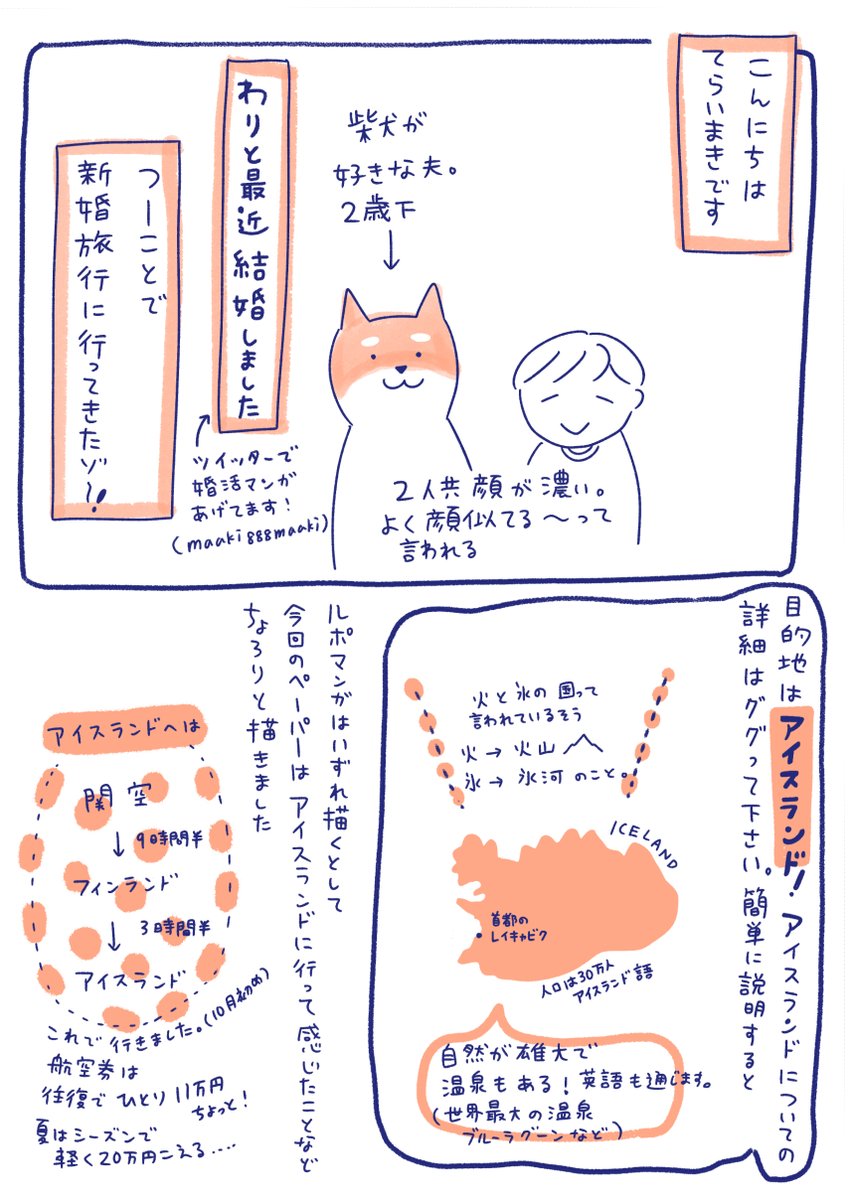 こんにちは
てらいまきです
柴犬が
好きな夫。
2歳下
わりと最近結婚しました
ツイッターで
婚活マンが
あげてます!
(maaki888maaki)
つーことで
新婚旅行に行ってきたゾ〜!
2人共顔が濃い。
よく顔似てる〜って
言われる
目的地はアイスランド!アイスランドについての
詳細はググって下さい。簡単に説明すると
火と氷の国って
言われているそう
火→火山
氷→氷河のこと。
ICELAND
首都の
レイキャビク
人口は30万人
アイスランド語
自然が雄大で
温泉もある!英語も通じます。
(世界最大の温泉
ブルーラグーンなど)
ルポマンがはいずれ描くとして
今回のペーパーはアイスランドに行って感じたことなど
ちょろりと描きました
アイスランドへは
関空
↓9時間半
フィンランド
↓3時間半
アイスランド
これで行きました。(10月初め)
航空券は
往復でひとり11万円
ちょっと!
夏はシーズンで
軽く20万円こえる....